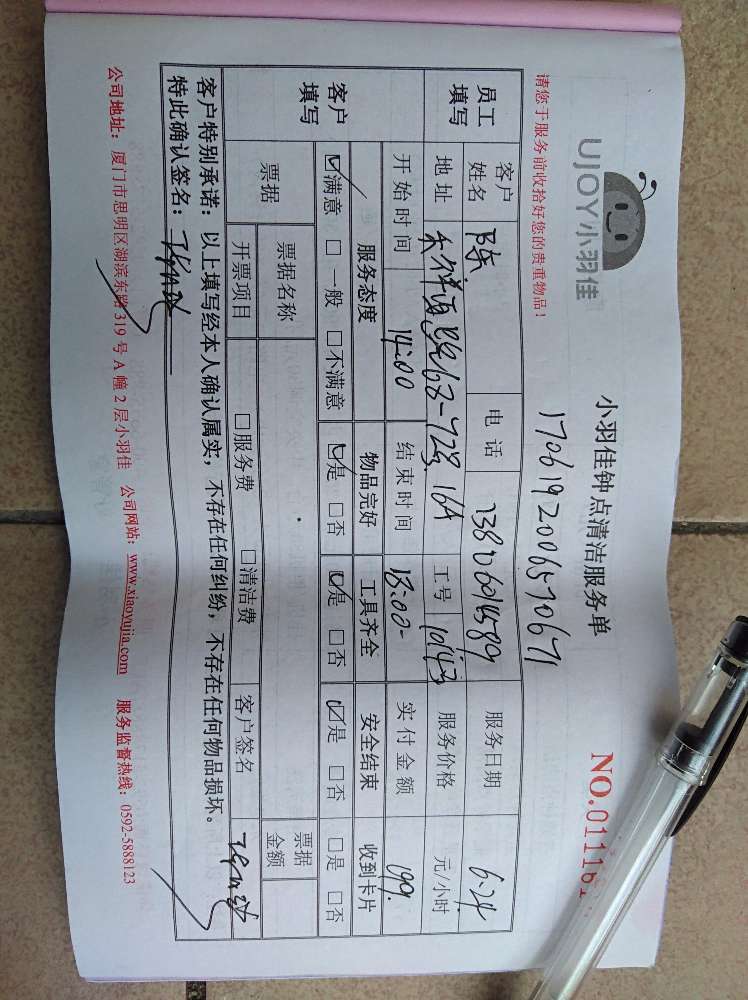 UJOY小羽佳
小羽佳钟点清洁服务单
NO.01116
请您于服务前收拾好您的贵重物品！
17061920065706 71
员工填写 客户姓名 陈 电话 服务日期 6.24
地址 68-728 16A 工号 服务价格 元/小时
开始时间 14:00 结束时间 18:00 实付金额 199.
客户填写 服务态度 物品完好 工具齐全 安全结束 收到卡片
☑满意 □一般 □不满意 ☑是 □否 ☑是 □否 ☑是 □否 □是 □否
票据 票据名称 票据金额
开票项目 □服务费 □清洁费 客户签名
客户特别承诺：以上填写经本人确认属实，不存在任何纠纷，不存在任何物品损坏。
特此确认签名：
公司地址：厦门市思明区湖滨东路319号A幢2层小羽佳 公司网站：www.xiaoyujia.com 服务监督热线：0592-5888123